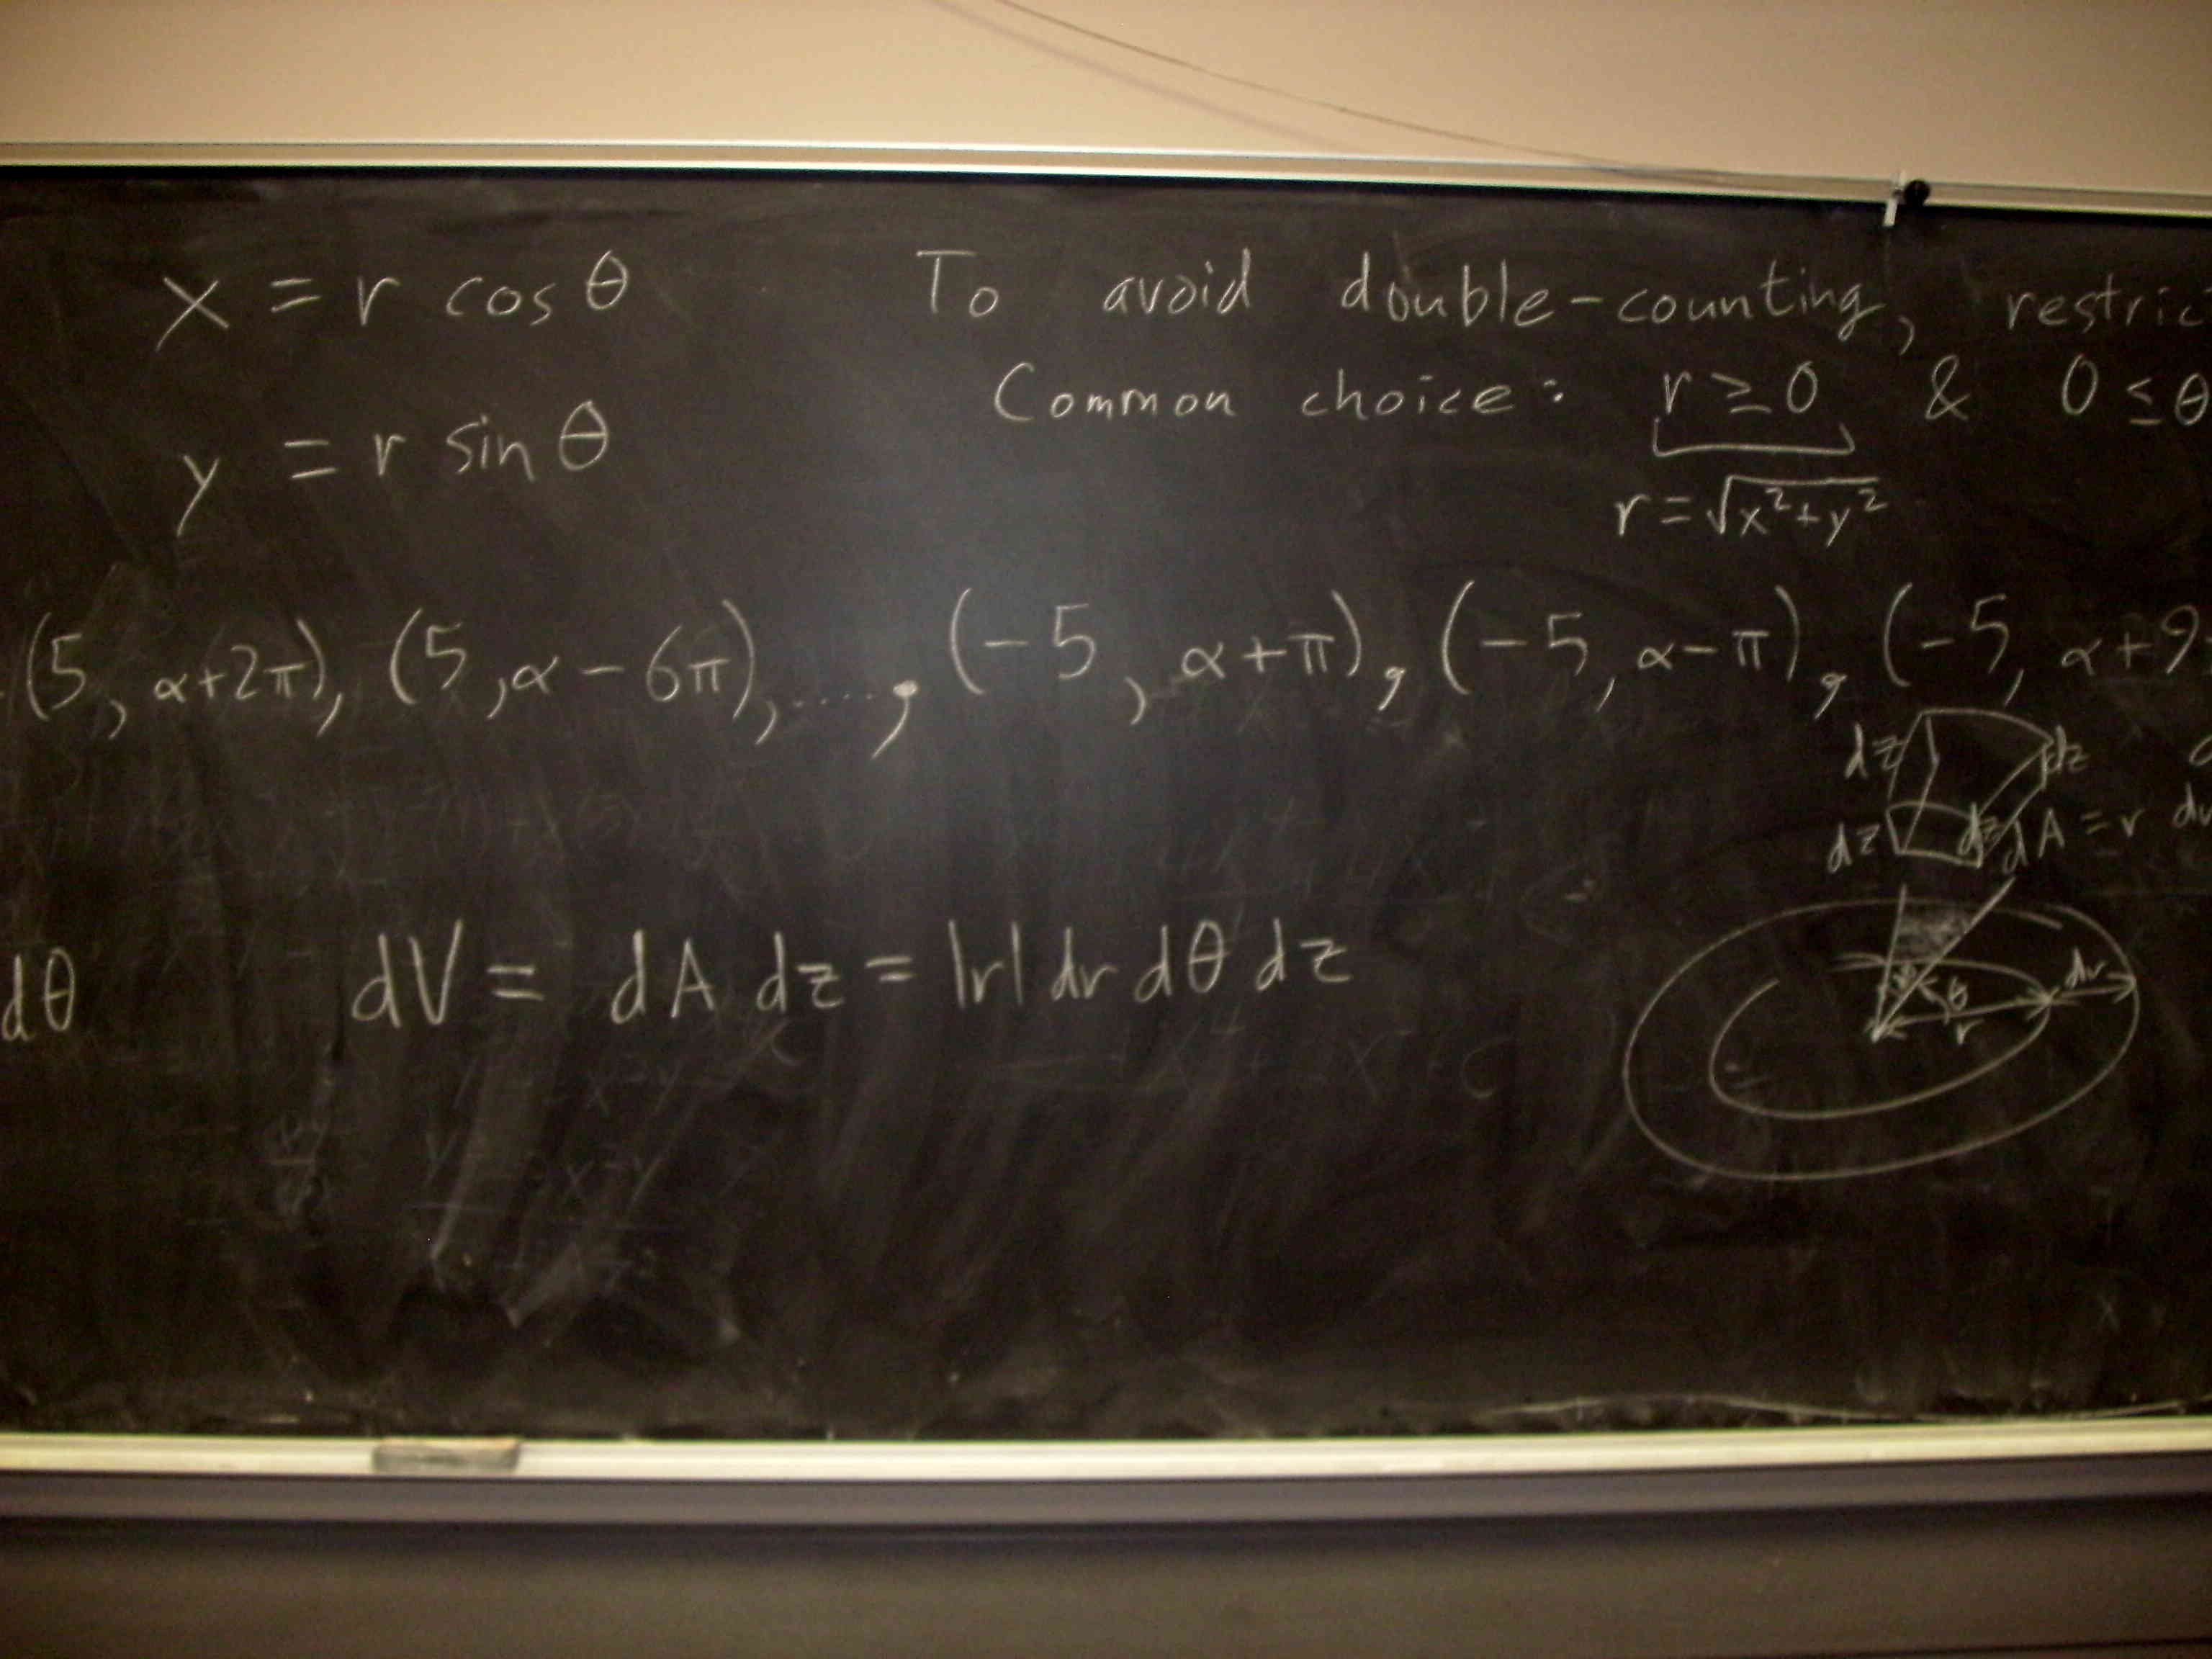 x = r cos θ To avoid double-counting, restric
Common choice: r ≥ 0 & 0 ≤ θ
y = r sin θ
r = √x²+y²
(5, α+2π), (5, α − 6π), ...., (−5, α+π), (−5, α−π), (−5, α+9
dz dz
dz dz dA = r dr
dθ dV = dA dz = |r| dr dθ dz
θ dr
r